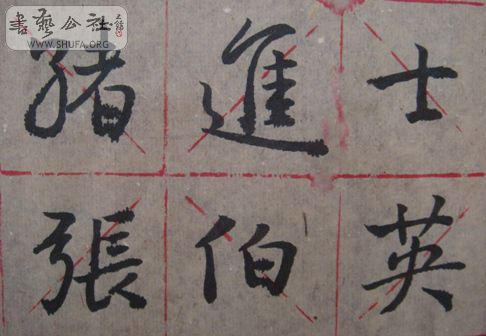 書藝公社
WWW.SHUFA.ORG
緒進士
張伯英